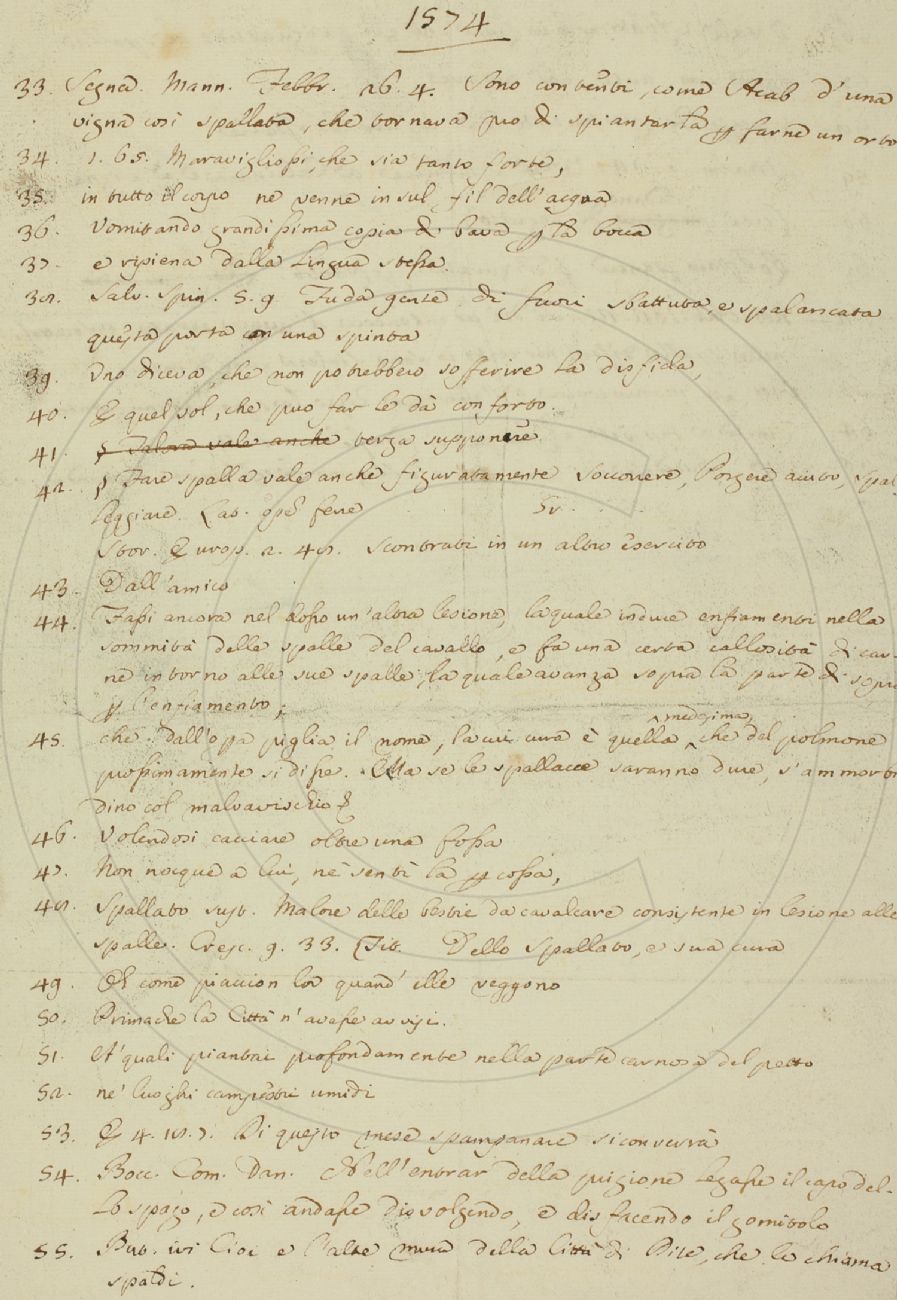 1574
33. Segner. Mann. Febbr. 26. 4. Sono contenti, come Acab d'una
vigna così spallata, che tornava più di spiantarla p farne un orto
34. 1. 65. Maravigliossi, che sia tanto forte,
35. in tutto il corpo ne venne in sul fil dell'acqua
36. Vomitando grandissima copia di bava p la bocca
37. e ripiena dalla lingua stessa.
38. Salv. Spin. 5. 9. Fu da gente di fuori sbattuta, e spalancata
questa porta con una spinta
39. Uno diceva, che non potrebbero sofferire la disfida,
40. E quel sol, che può far le dà conforto.
41. § Talora vale anche terza supponere
42. § Fare spalla vale anche figuratamente Soccorrere, Porgere aiuto, Spal-
leggiare. Lat. opem ferre Gr.
Stor. Europ. 2. 48. Scontrati in un altro esercito
43. Dall'amico
44. Fassi ancora nel dosso un'altra lesione, la quale induce enfiamenti nella
sommità delle spalle del cavallo, e fa una certa callosità di car-
ne intorno alle sue spalle, la quale avanza sopra la parte di sopra
p l'enfiamento;
45. che dall'opa piglia il nome, la cui cura è quella medesima, che del polmone
prossimamente si disse. Ma se le spallacce saranno dure, s'ammorbi
dino col malvavischio
46. Volendosi cacciare oltre una fossa
47. Non nocque a lui, nè sentì la pcossa,
48. Spallato sust. Malore delle bestie da cavalcare consistente in lesione alle
spalle. Cresc. 9. 33. Tit. Dello Spallato, e sua cura
49. Oh come piaccion lor quand' elle veggono
50. Primachè la Città n'avesse avvisi.
51. A' quali piantai profondamente nella parte carnosa del petto
52. ne' luoghi campestri umidi
53. E 4. 18. 7. Di questo mese spampanare si converrà
54. Bocc. Com. Dan. Nell'entrar della prigione legasse il capo del-
lo spago, e così andasse disvolgendo, e disfacendo il gomitolo
55. But. ivi Cioè e l'alte mura della Città di Dite, che le chiama
spaldi.